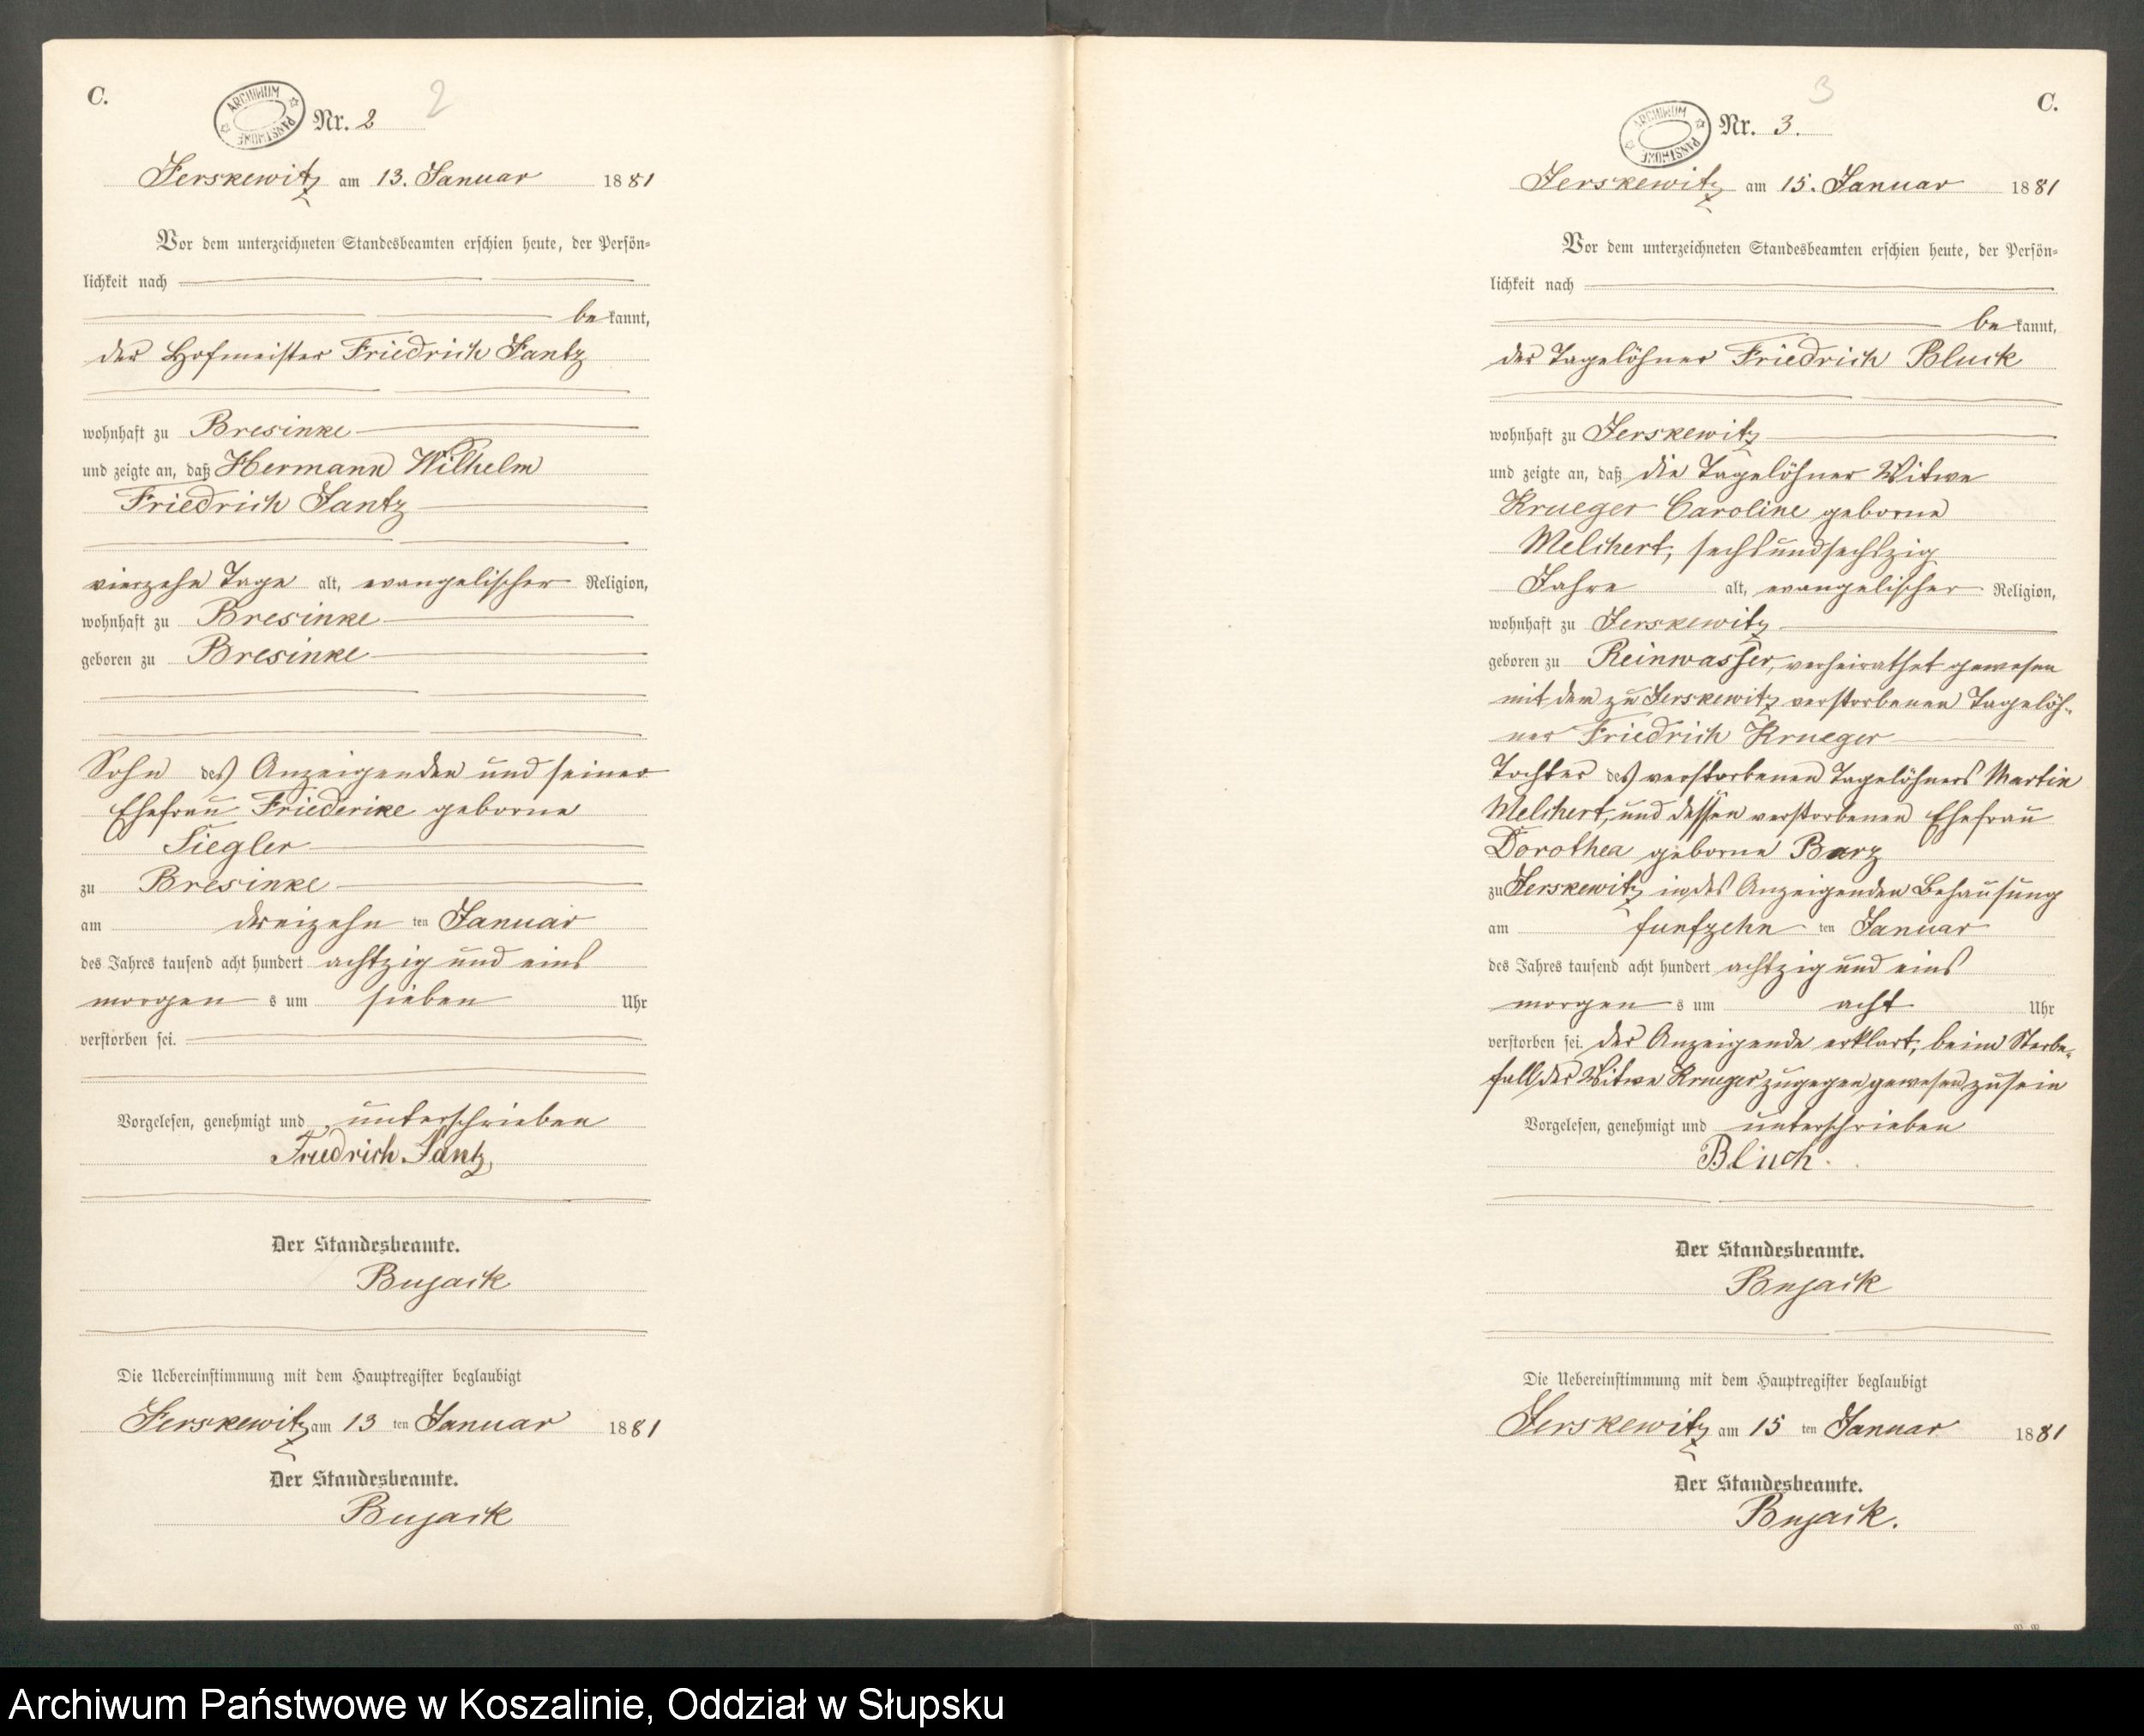 C.
ARCHIWUM PAŃSTWOWE
Nr. 2
2
Jerskewitz am 13. Januar 1881
Vor dem unterzeichneten Standesbeamten erschien heute, der Persön-
lichkeit nach
be kannt,
der Hofmeister Friedrich Jantz
wohnhaft zu Bresinke
und zeigte an, daß Hermann Wilhelm
Friedrich Jantz
vierzehn Tage alt, evangelischer Religion,
wohnhaft zu Bresinke
geboren zu Bresinke
Sohn des Anzeigenden und seiner
Ehefrau Friederike geborne
Siegler
zu Bresinke
am dreizehn ten Januar
des Jahres tausend acht hundert achtzig und eins
morgen s um sieben Uhr
verstorben sei.
Vorgelesen, genehmigt und unterschrieben
Friedrich Jantz
Der Standesbeamte.
Bujack
Die Uebereinstimmung mit dem Hauptregister beglaubigt
Jerskewitz am 13 ten Januar 1881
Der Standesbeamte.
Bujack
C.
3
ARCHIWUM PAŃSTWOWE
Nr. 3.
Jerskewitz am 15. Januar 1881
Vor dem unterzeichneten Standesbeamten erschien heute, der Persön-
lichkeit nach
be kannt,
der Tagelöhner Friedrich Bluck
wohnhaft zu Jerskewitz
und zeigte an, daß die Tagelöhner Witwe
Krueger Caroline geborne
Melchert, sechsundsechszig
Jahre alt, evangelischer Religion,
wohnhaft zu Jerskewitz
geboren zu Reinwasser, verheirathet gewesen
mit dem zu Jerskewitz verstorbenen Tagelöh-
ner Friedrich Krueger
Tochter des verstorbenen Tagelöhners Martin
Melchert, und dessen verstorbenen Ehefrau
Dorothea geborne Barz
zu Jerskewitz in des Anzeigenden Behausung
am funfzehn ten Januar
des Jahres tausend acht hundert achtzig und eins
morgen s um acht Uhr
verstorben sei. der Anzeigende erklart, beim Sterbe-
fall der Witwe Krueger zugegen gewesen zu sein
Vorgelesen, genehmigt und unterschrieben
Bluck.
Der Standesbeamte.
Bujack
Die Uebereinstimmung mit dem Hauptregister beglaubigt
Jerskewitz am 15 ten Januar 1881
Der Standesbeamte.
Bujack.
Archiwum Państwowe w Koszalinie, Oddział w Słupsku